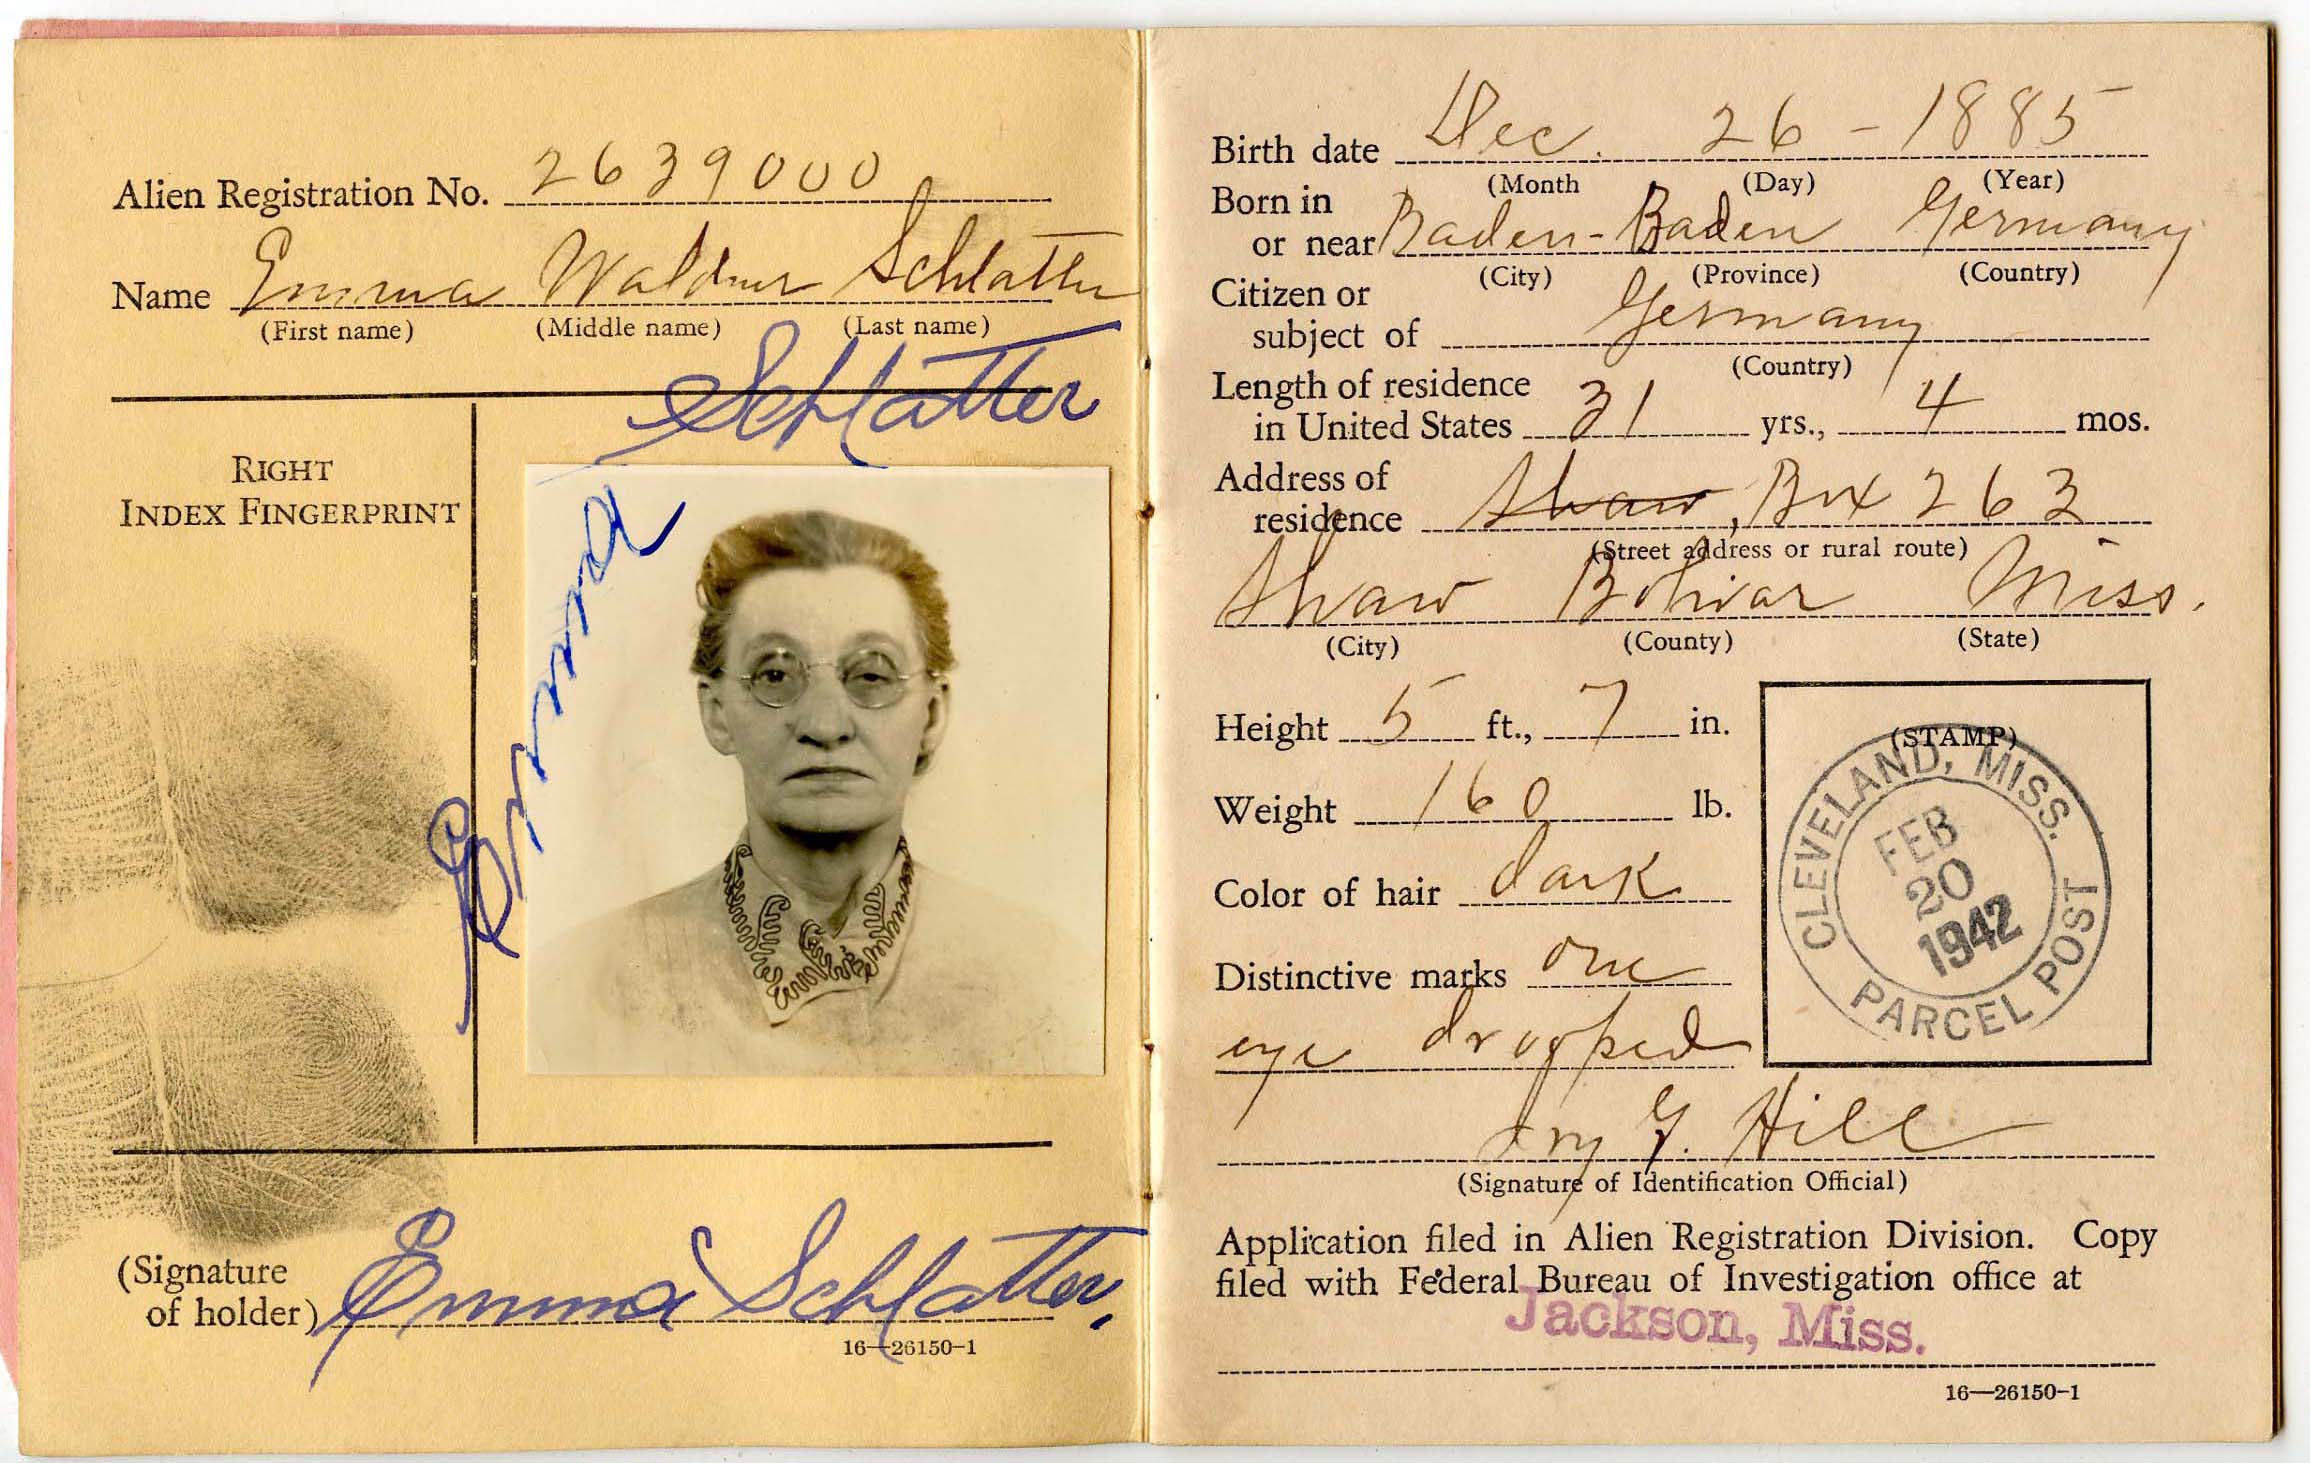 Alien Registration No. 2639000
Name Emma Waldner Schlatter
(First name) (Middle name) (Last name)
Emma Schlatter
RIGHT
INDEX FINGERPRINT
(Signature
of holder) Emma Schlatter.
16—26150-1
Birth date Dec. 26 - 1885
(Month (Day) (Year)
Born in
or near Baden-Baden Germany
(City) (Province) (Country)
Citizen or
subject of Germany
(Country)
Length of residence
in United States 31 yrs., 4 mos.
Address of
residence Shaw, Box 263
(Street address or rural route)
Shaw Bolivar Miss.
(City) (County) (State)
Height 5 ft., 7 in.
Weight 160 lb.
Color of hair dark
Distinctive marks one
eye drooped
(STAMP)
CLEVELAND, MISS.
FEB
20
1942
PARCEL POST
Y. Hill
(Signature of Identification Official)
Application filed in Alien Registration Division. Copy
filed with Federal Bureau of Investigation office at
Jackson, Miss.
16—26150-1